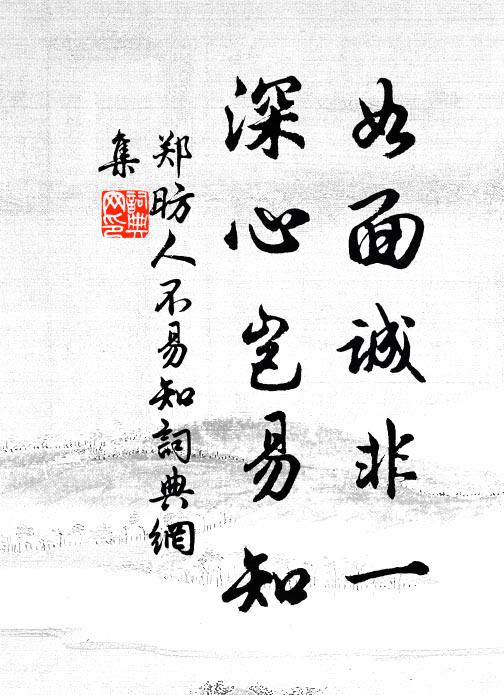 如面诚非一
深心岂易知
郑昉人不易知詞典網
集
詞典
网印